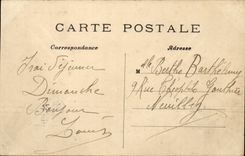 CARTE POSTALE
Correspondance
Adresse
Irai Déjeuner
Dimanche
Bonjour
Louis
M lle Berthe Barthélemy
9 Rue Théophile Gauthier
Neuilly